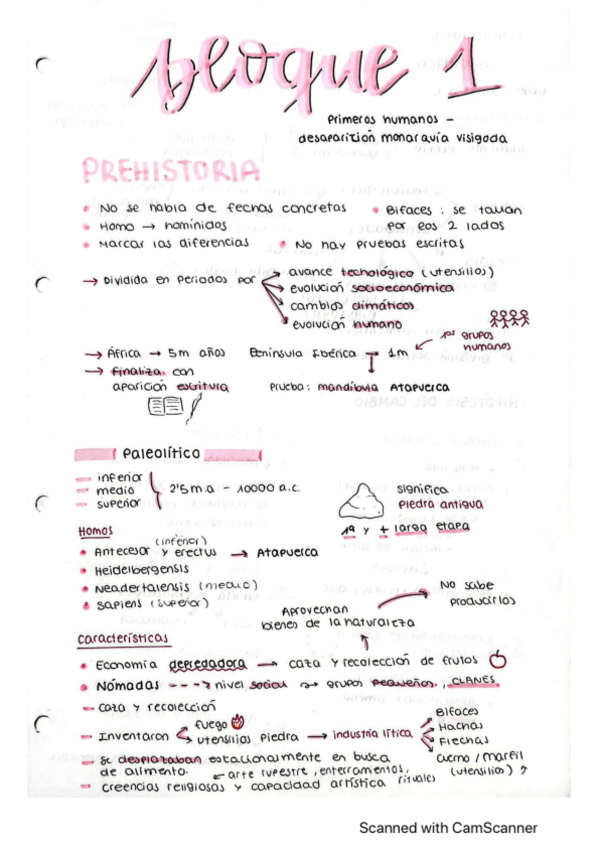 bloque 1
Primeros humanos –
desaparición monarquía visigoda
PREHISTORIA
• No se habla de fechas concretas
• Homo → homínidos
• Marcar las diferencias
• Bifaces : se tallan
por los 2 lados
• No hay pruebas escritas
→ Dividida en periodos por
avance tecnológico (utensilios)
evolución socioeconómica
cambios climáticos
evolución humano
→ África → 5m años
Península Ibérica → 1m
1os grupos
humanos
→ Finaliza con
aparición escritura
Prueba : mandíbula Atapuerca
Paleolítico
– inferior
– medio
– superior
2'5 m.a – 10000 a.c.
significa
piedra antigua
1ª y + larga etapa
Homos
(inferior)
• Antecesor y erectus → Atapuerca
• Heidelbergensis
• Neadertalensis (medio)
• Sapiens (superior)
Aprovechan
bienes de la naturaleza
No sabe
producirlos
características
• Economía depredadora → caza y recolección de frutos
• Nómadas ---> nivel social → grupos pequeños, CLANES
– caza y recolección
– Inventaron
fuego
utensilios piedra → industria lítica
Bifaces
Hachas
Flechas
cuerno / marfil
(utensilios)
– se desplazaban estacionalmente en busca
de alimento.
← arte rupestre, enterramientos,
rituales
– creencias religiosas y capacidad artística
Scanned with CamScanner